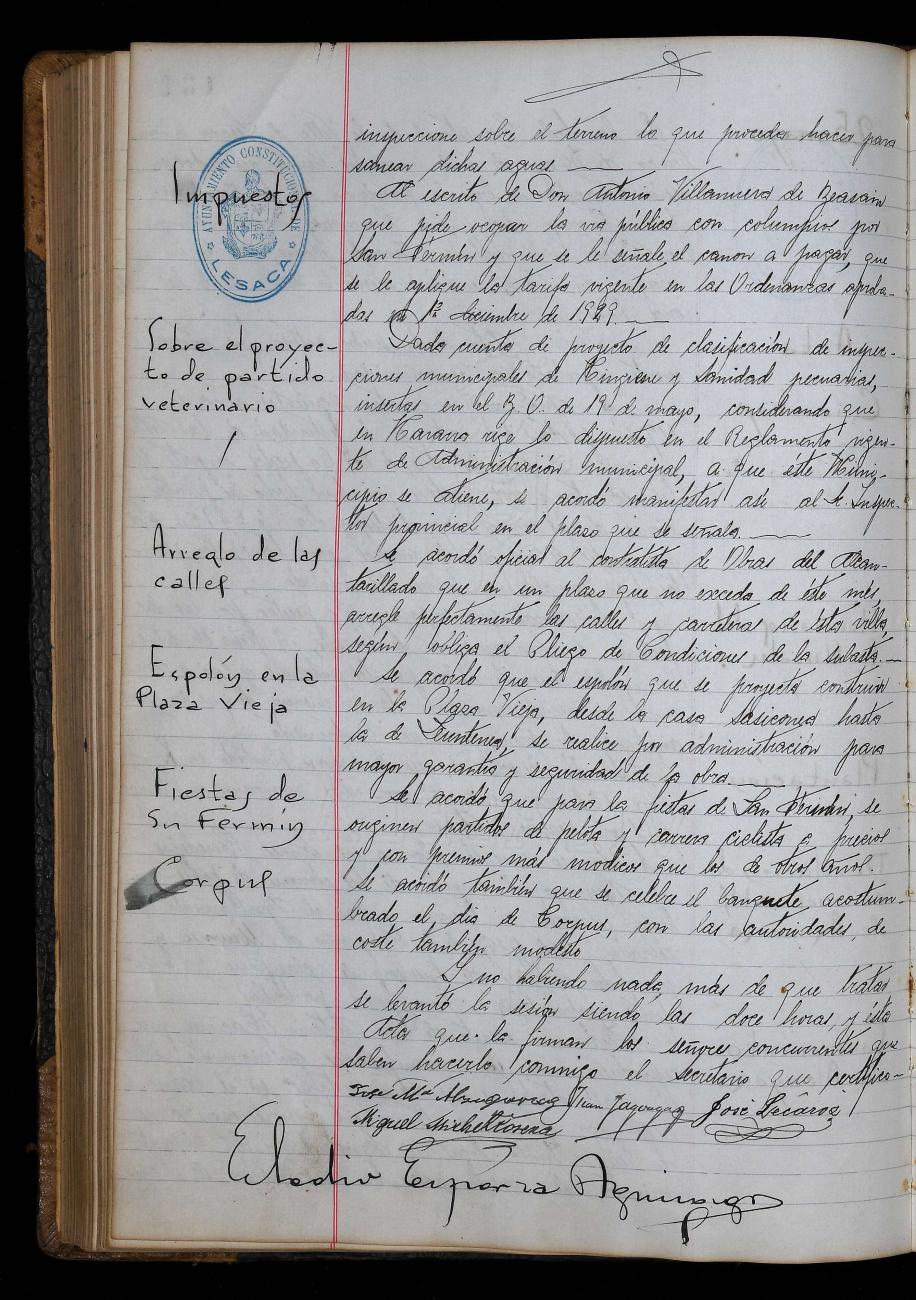 inspeccione sobre el terreno lo que proceda hacer para
sanear dichas aguas
Impuestos
AYUNTAMIENTO CONSTITUCIONAL DE
LESACA
Al escrito de Don Antonio Villanueva de Beasain
que pide ocupar la via pública con columpios por
San Fermín y que se le señale el canon a pagar, que
se le aplique la tarifa vigente en las Ordenanzas aproba-
das en 1º diciembre de 1929.
Sobre el proyec-
to de partido
veterinario
Dada cuenta de proyecto de clasificación de inspec-
ciones municipales de Hingiene y Sanidad pecuarias,
insertas en el B. O. de 19 de mayo, considerando que
en Navarra rige lo dispuesto en el Reglamento vigen-
te de Administración municipal, a que éste Muni-
cipio se atiene, se acordó manifestar asi al Sr. Inspec-
tor provincial en el plazo que se señala.
Arreglo de las
calles
Se acordó oficiar al contratista de Obras del Alcan-
tarillado que en un plazo que no exceda de éste més,
arregle perfectamente las calles y carreteras de ésta villa,
según obliga el Pliego de Condiciones de la subasta.
Espolón en la
Plaza Vieja
Se acordó que el espolón que se proyecta construir
en la Plaza Vieja, desde la casa hasta
la de se realice por administración para
mayor garantía y seguridad de la obra.
Fiestas de
Sn Fermín
Se acordó que para la fiestas de San Fermín, se
originen partidos de pelota y carrera ciclista a precios
y con premios más modicos que los de otros años.
Corpus
Se acordó también que se celebre el banquete acostum-
brado el dia de Corpus, con las autoridades, de
coste también modesto
Y no habiendo nada, más de que tratar
se levantó la sesión siendo las doce horas, y ésta
Acta que la firman los señores concurrentes que
saben hacerlo conmigo el secretario que certifico-
Jose Mª Juan José
Miguel Michel
Eladio Esparza Aguinaga